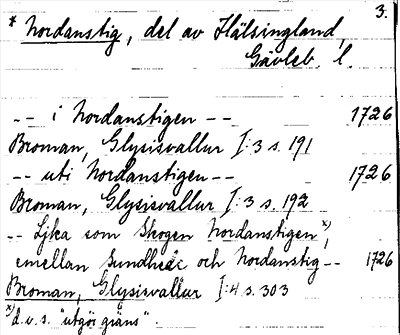 3.
* Nordanstig, del av Hälsingland,
Gävleb. l.
-- i Nordanstigen -- 1726
Broman, Glysisvallur I:3 s. 191
-- uti Nordanstigen -- 1726
Broman, Glysisvallur I:3 s. 192
-- Lika som Skogen Nordanstigen *),
emellan Sundhede och Nordanstig -- 1726
Broman, Glysisvallur I:4 s. 303
*) d.v.s. "utgör gräns".